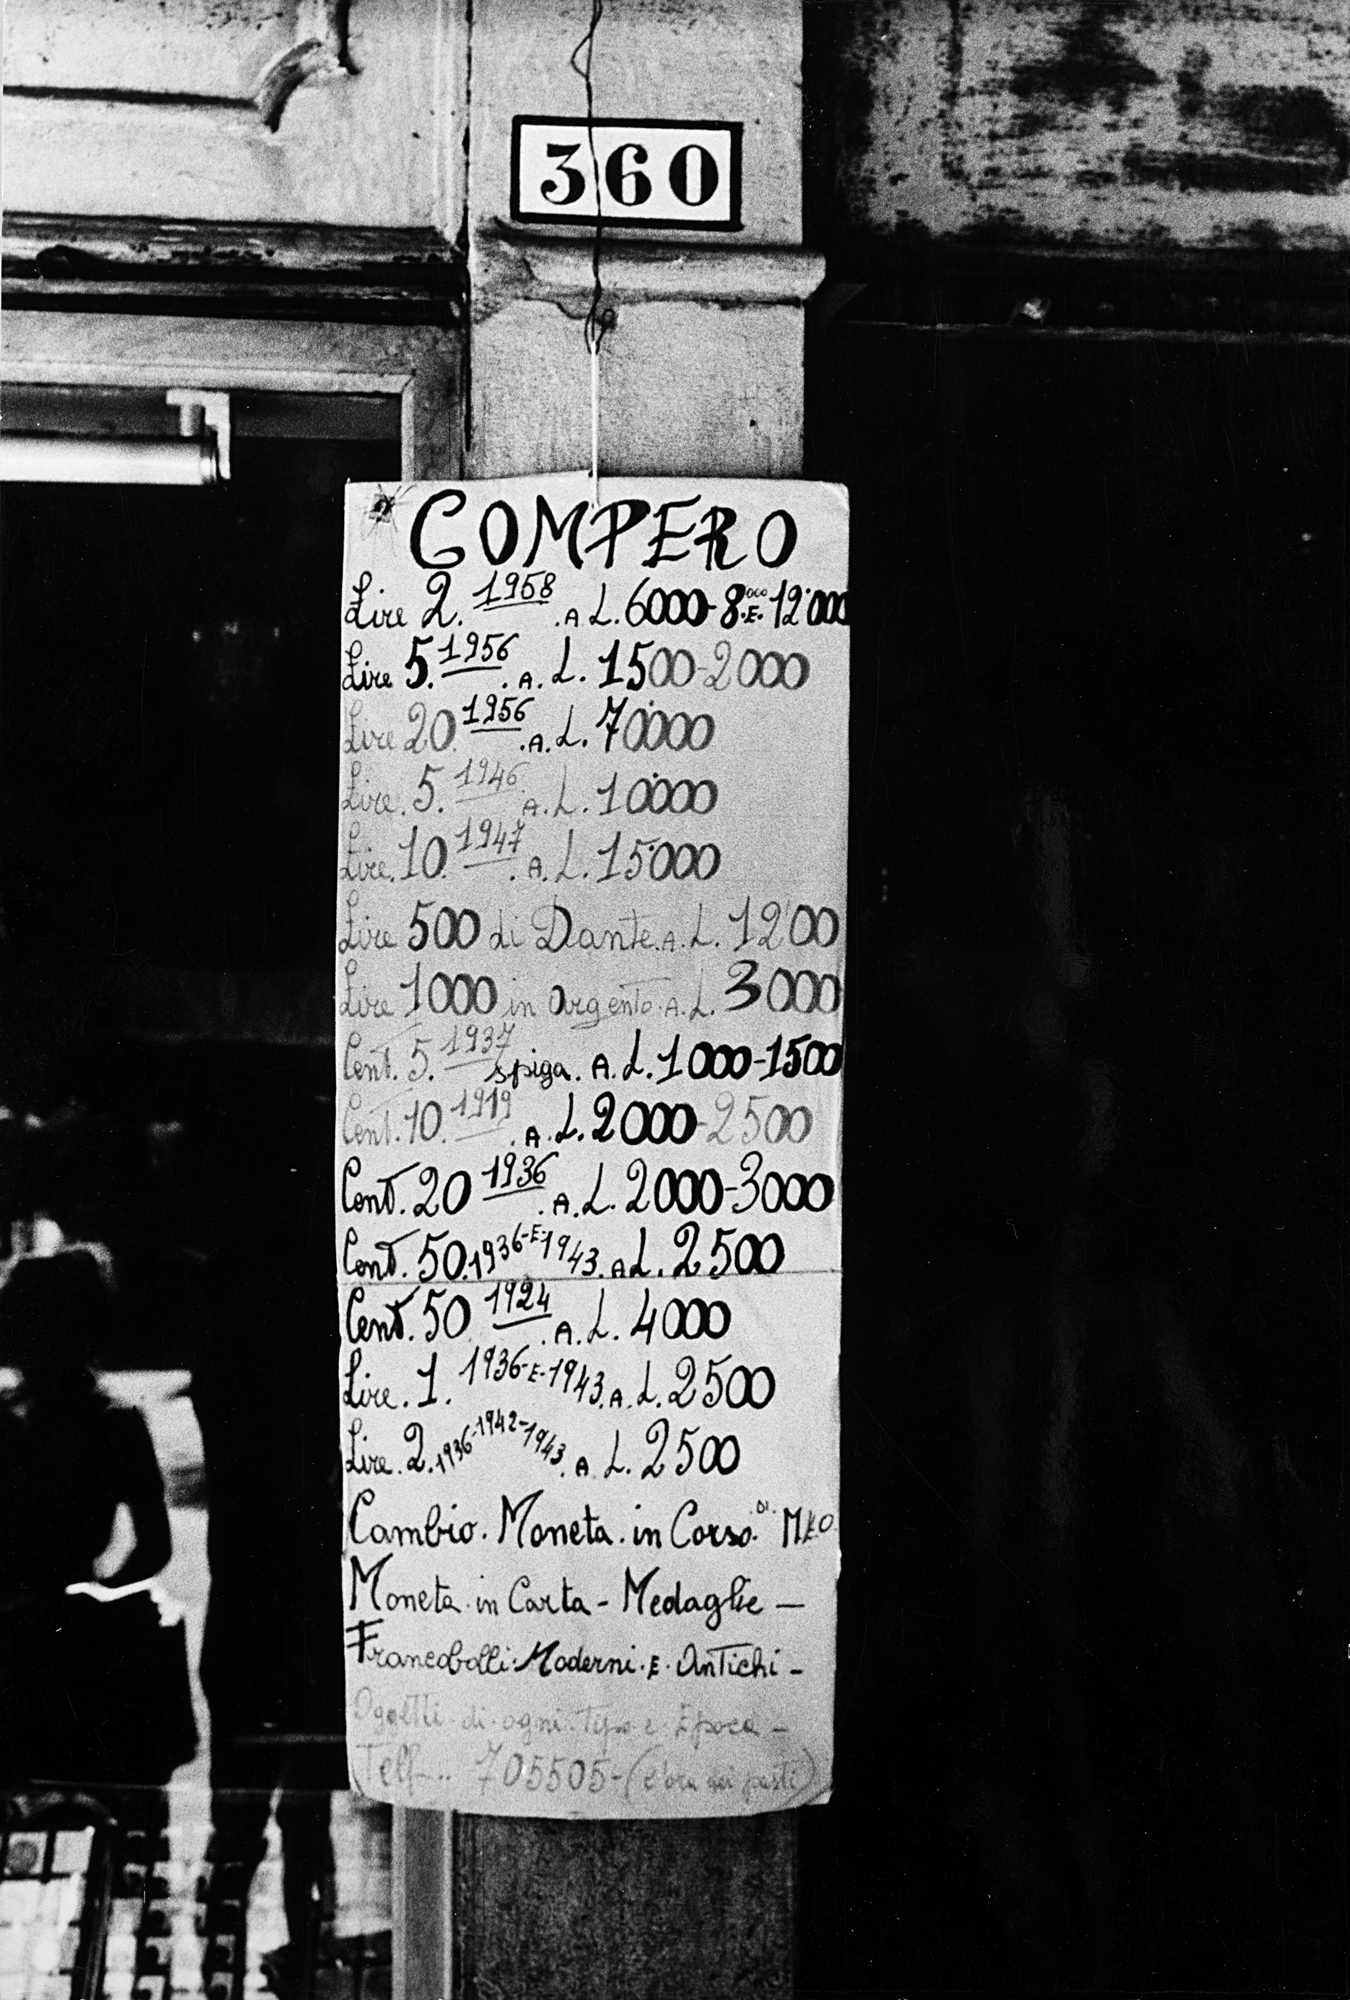 360
COMPERO
Lire 2. 1958 . A L. 6000-8000.E.12'000
Lire 5. 1956 . A. L. 1500-2000
Lire 20. 1956 .A. L. 70'000
Lire. 5. 1946 A. L. 10'000
Lire. 10. 1947 . A. L. 15'000
Lire 500 di Dante. A. L. 1200
Lire 1000 in Argento. A. L. 3000
Cent. 5. 1937 spiga. A. L. 1000-1500
Cent. 10. 1919 . A. L. 2000-2500
Cent. 20 1936 . A. L. 2000-3000
Cent. 50. 1936-E-1943. A L. 2500
Cent. 50 1924 . A. L. 4000
Lire. 1. 1936-E-1943. A. L. 2500
Lire. 2. 1936-1942-1943. A L. 2500
Cambio. Moneta. in Corso. DI.
Moneta. in Carta - Medaglie -
Francobolli. Moderni. E. Antichi -
Oggetti di ogni Tipo e Epoca -
Telf... 705505-(l'ora dei pasti)